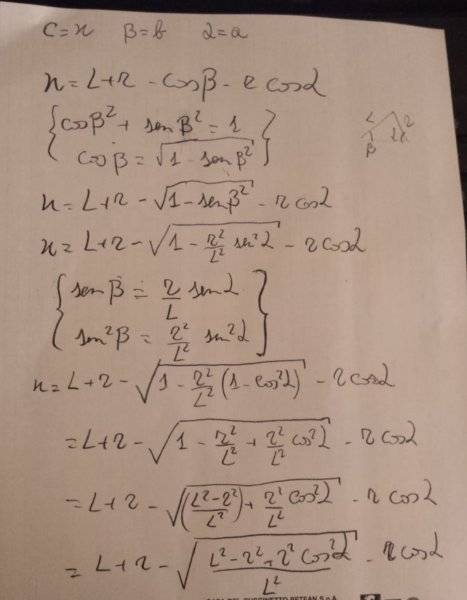 C=x β=b α=a
x = L+r - cosβ - r cosα
{cosβ² + senβ² = 1
cosβ = √(1 - senβ²)}
x = L+r - √(1 - senβ²) - r cosα
x = L+r - √(1 - r²/L² sen²α) - r cosα
{senβ = r/L senα
sen²β = r²/L² sin²α}
x = L+r - √(1 - r²/L² (1 - cos²α)) - r cosα
= L+r - √(1 - r²/L² + r²/L² cos²α) - r cosα
= L+r - √((L²-r²/L²) + r²/L² cos²α) - r cosα
= L+r - √(L²-r²+r² cos²α/L²) - r cosα
L r
β α